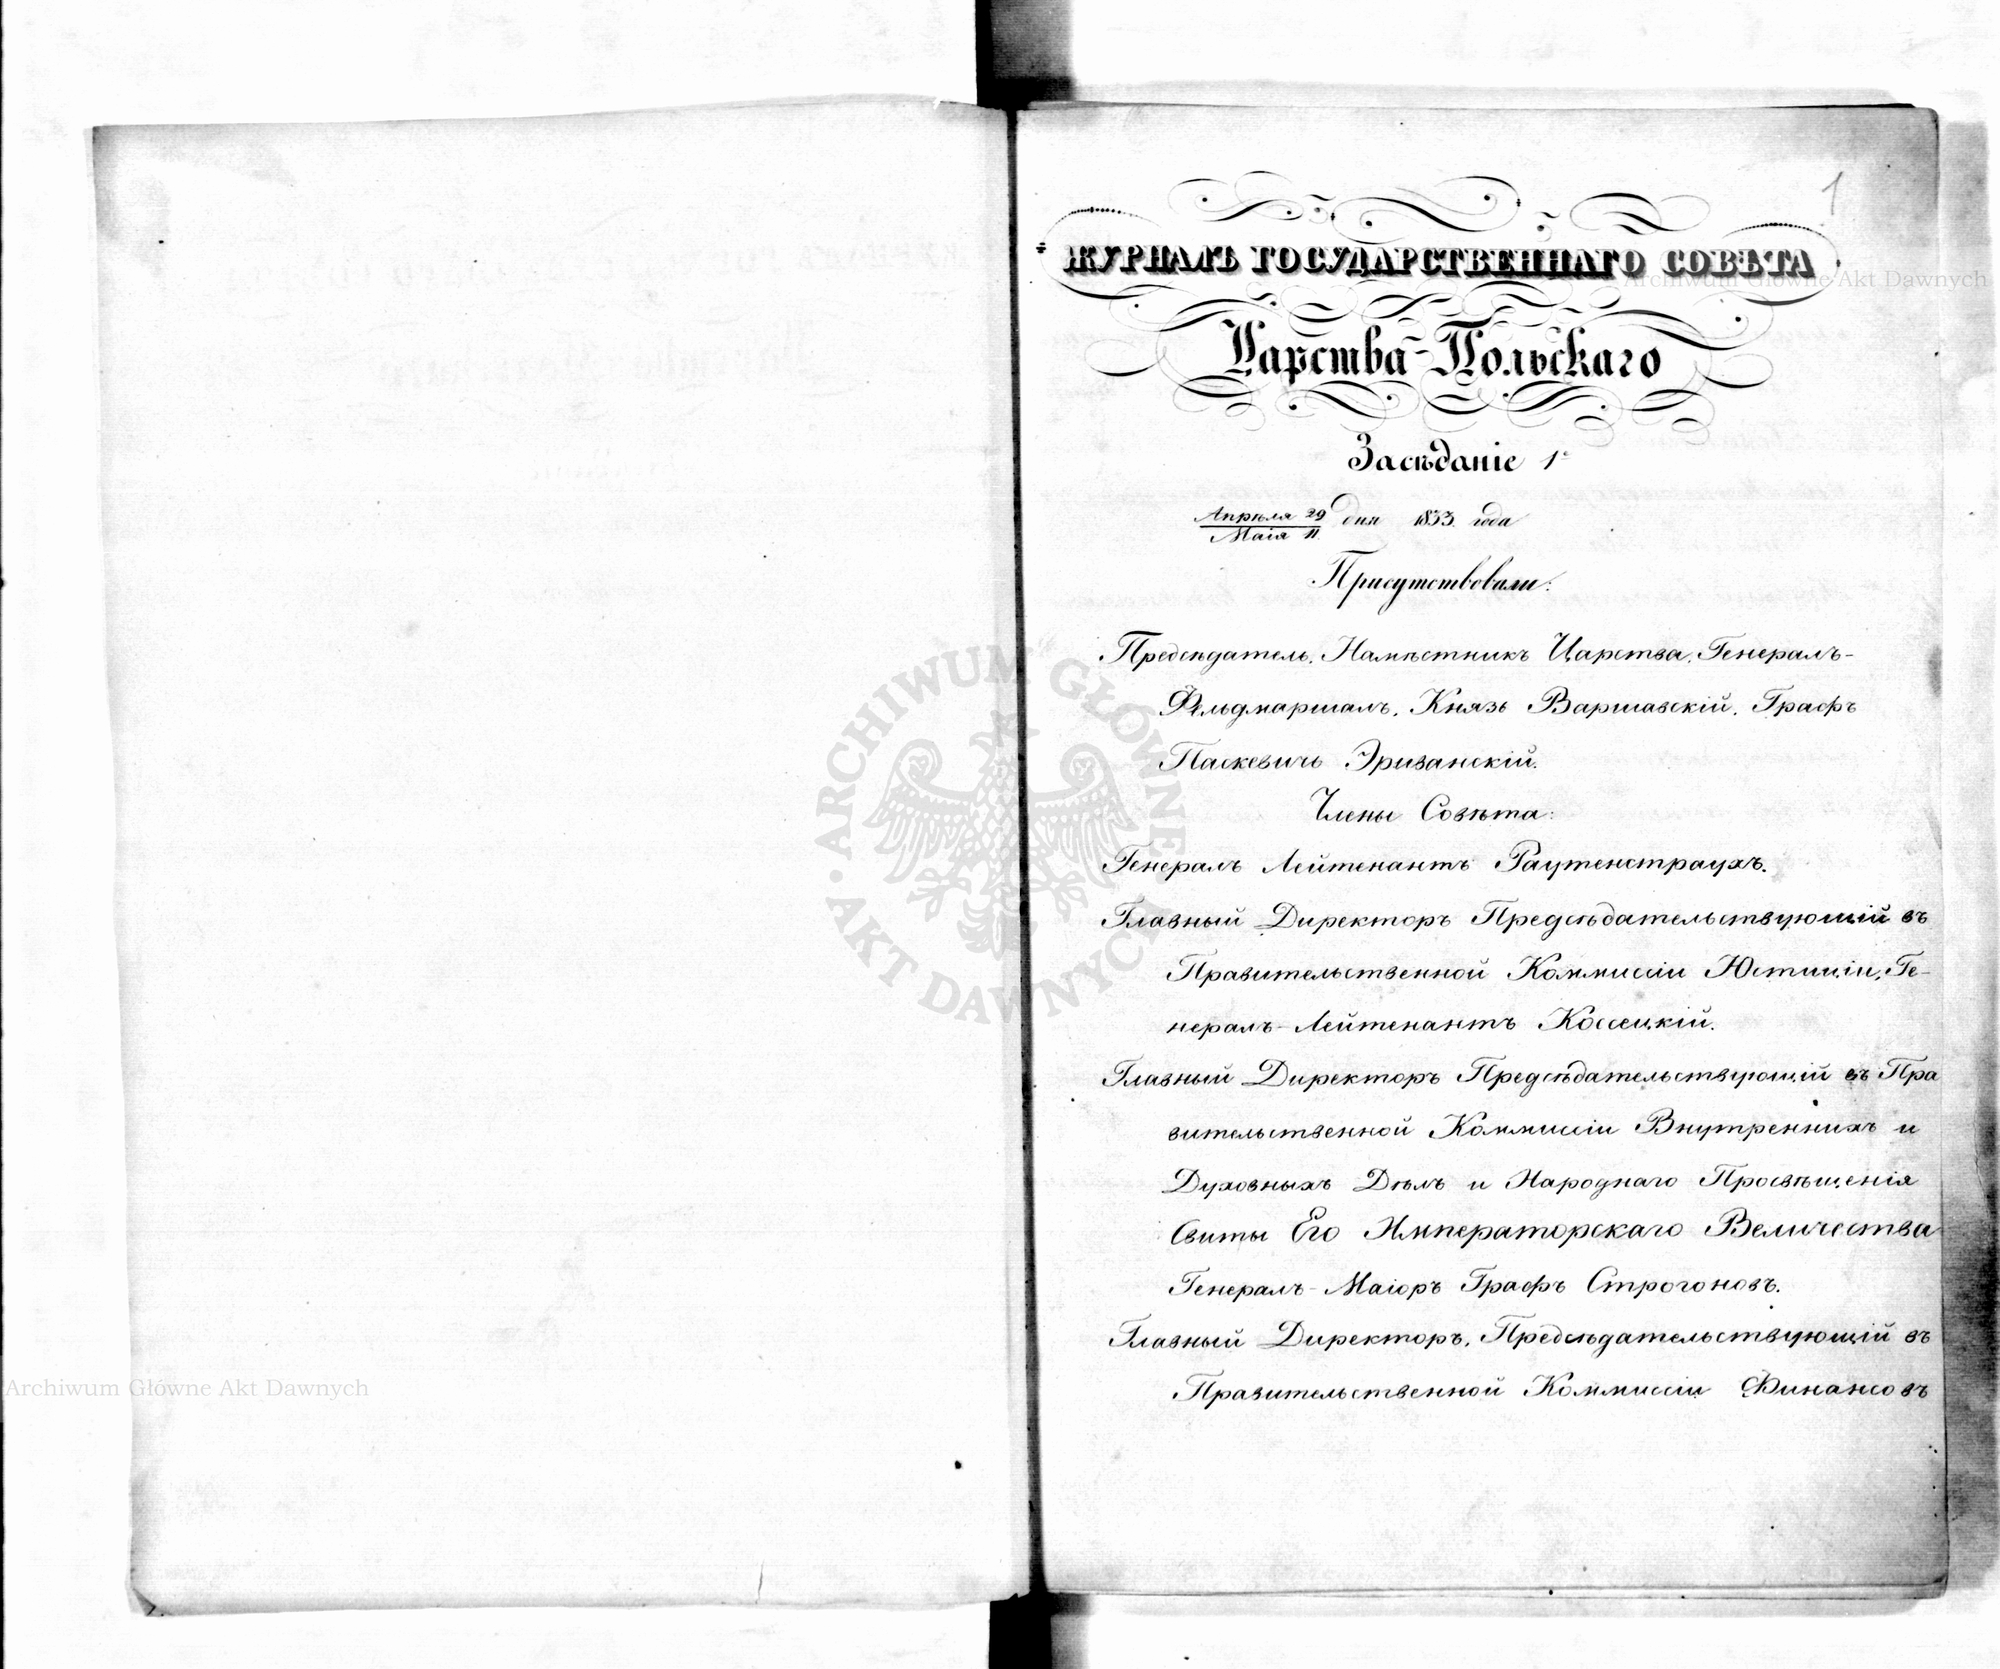 1
ЖУРНАЛЪ ГОСУДАРСТВЕННАГО СОВѢТА
Царства Польскаго
Засѣданіе 1е
Апрѣля 29 / Маія 11 дня 1833 года
Присутствовали:
Предсѣдатель, Намѣстникъ Царства, Генералъ-
Фельдмаршалъ, Князь Варшавскій, Графъ
Паскевичъ Эриванскій.
Члены Совѣта:
Генералъ Лейтенантъ Раутенстраухъ.
Главный Директоръ Предсѣдательствующій въ
Правительственной Коммиссіи Юстиціи, Ге-
нералъ-Лейтенантъ Коссецкій.
Главный Директоръ Предсѣдательствующій въ Пра
вительственной Коммиссіи Внутреннихъ и
Духовныхъ Дѣлъ и Народнаго Просвѣщенія
Свиты Его Императорскаго Величества
Генералъ-Маіоръ Графъ Строгоновъ.
Главный Директоръ, Предсѣдательствующій въ
Правительственной Коммиссіи Финансовъ
Archiwum Główne Akt Dawnych
ARCHIWUM GŁÓWNE AKT DAWNYCH
Archiwum Główne Akt Dawnych